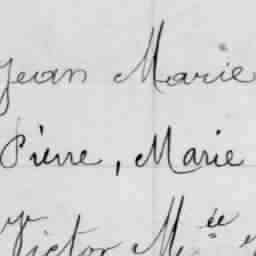 Jean Marie
Pierre, Marie
Victor M